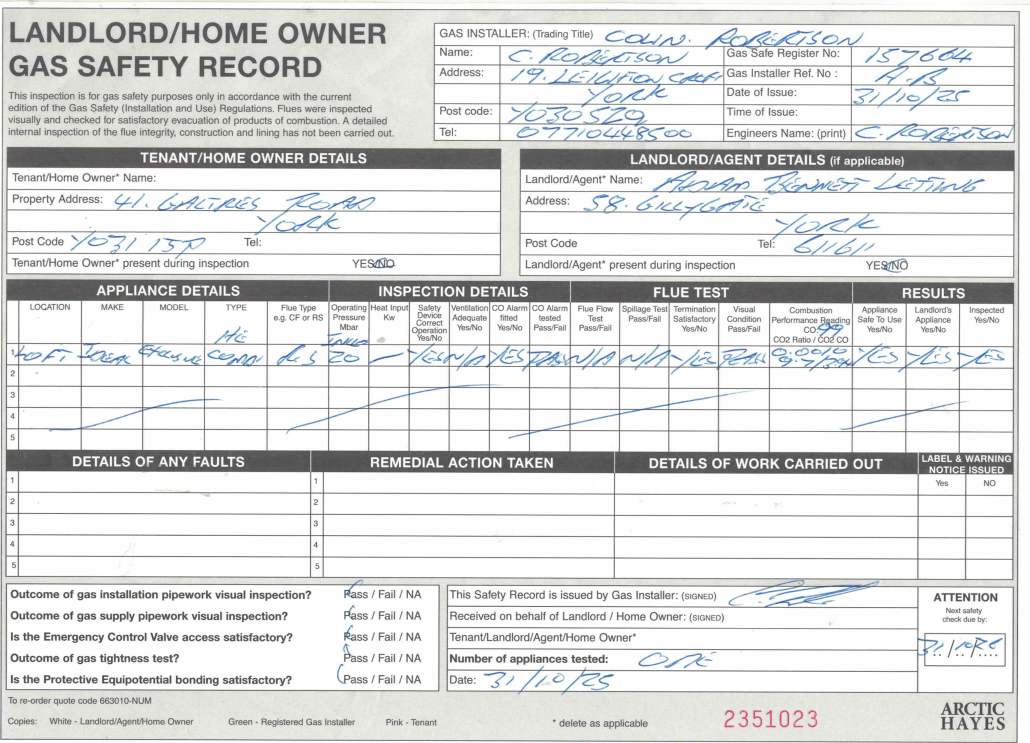 LANDLORD/HOME OWNER
GAS SAFETY RECORD
This inspection is for gas safety purposes only in accordance with the current
edition of the Gas Safety (Installation and Use) Regulations. Flues were inspected
visually and checked for satisfactory evacuation of products of combustion. A detailed
internal inspection of the flue integrity, construction and lining has not been carried out.
GAS INSTALLER: (Trading Title) COLIN. ROBERTSON
Name: C. ROBERTSON
Gas Safe Register No: 157664
Address: 19. LEIGHTON CROFT
YORK
Gas Installer Ref. No : A.B
Date of Issue: 31/10/25
Post code: YO30 5ZQ
Time of Issue:
Tel: 07710448500
Engineers Name: (print) C. ROBERTSON
TENANT/HOME OWNER DETAILS
Tenant/Home Owner* Name:
Property Address: 41. GALTRES ROAD
YORK
Post Code YO31 1JP Tel:
Tenant/Home Owner* present during inspection YES/NO
LANDLORD/AGENT DETAILS (if applicable)
Landlord/Agent* Name: ADAM BENNETT LETTING
Address: 58. GILLYGATE
YORK
Post Code Tel: 611611
Landlord/Agent* present during inspection YES/NO
APPLIANCE DETAILS INSPECTION DETAILS FLUE TEST RESULTS
LOCATION MAKE MODEL TYPE Flue Type e.g. CF or RS Operating Pressure Mbar Heat Input Kw Safety Device Correct Operation Yes/No Ventilation Adequate Yes/No CO Alarm fitted Yes/No CO Alarm tested Pass/Fail Flue Flow Test Pass/Fail Spillage Test Pass/Fail Termination Satisfactory Yes/No Visual Condition Pass/Fail Combustion Performance Reading CO2 CO2 Ratio / CO2 CO Appliance Safe To Use Yes/No Landlord's Appliance Yes/No Inspected Yes/No
HE
1 LOFT IDEAL COMBI RS 20 — YES N/A YES PASS N/A N/A YES PASS 0.0010 YES YES YES
2
3
4
5
DETAILS OF ANY FAULTS REMEDIAL ACTION TAKEN DETAILS OF WORK CARRIED OUT LABEL & WARNING NOTICE ISSUED
Yes NO
1 1
2 2
3 3
4 4
5 5
Outcome of gas installation pipework visual inspection? Pass / Fail / NA
Outcome of gas supply pipework visual inspection? Pass / Fail / NA
Is the Emergency Control Valve access satisfactory? Pass / Fail / NA
Outcome of gas tightness test? Pass / Fail / NA
Is the Protective Equipotential bonding satisfactory? Pass / Fail / NA
This Safety Record is issued by Gas Installer: (SIGNED)
Received on behalf of Landlord / Home Owner: (SIGNED)
Tenant/Landlord/Agent/Home Owner*
Number of appliances tested: ONE
Date: 31/10/25
ATTENTION
Next safety
check due by:
31/10/26
To re-order quote code 663010-NUM
Copies: White - Landlord/Agent/Home Owner Green - Registered Gas Installer Pink - Tenant * delete as applicable 2351023
ARCTIC
HAYES